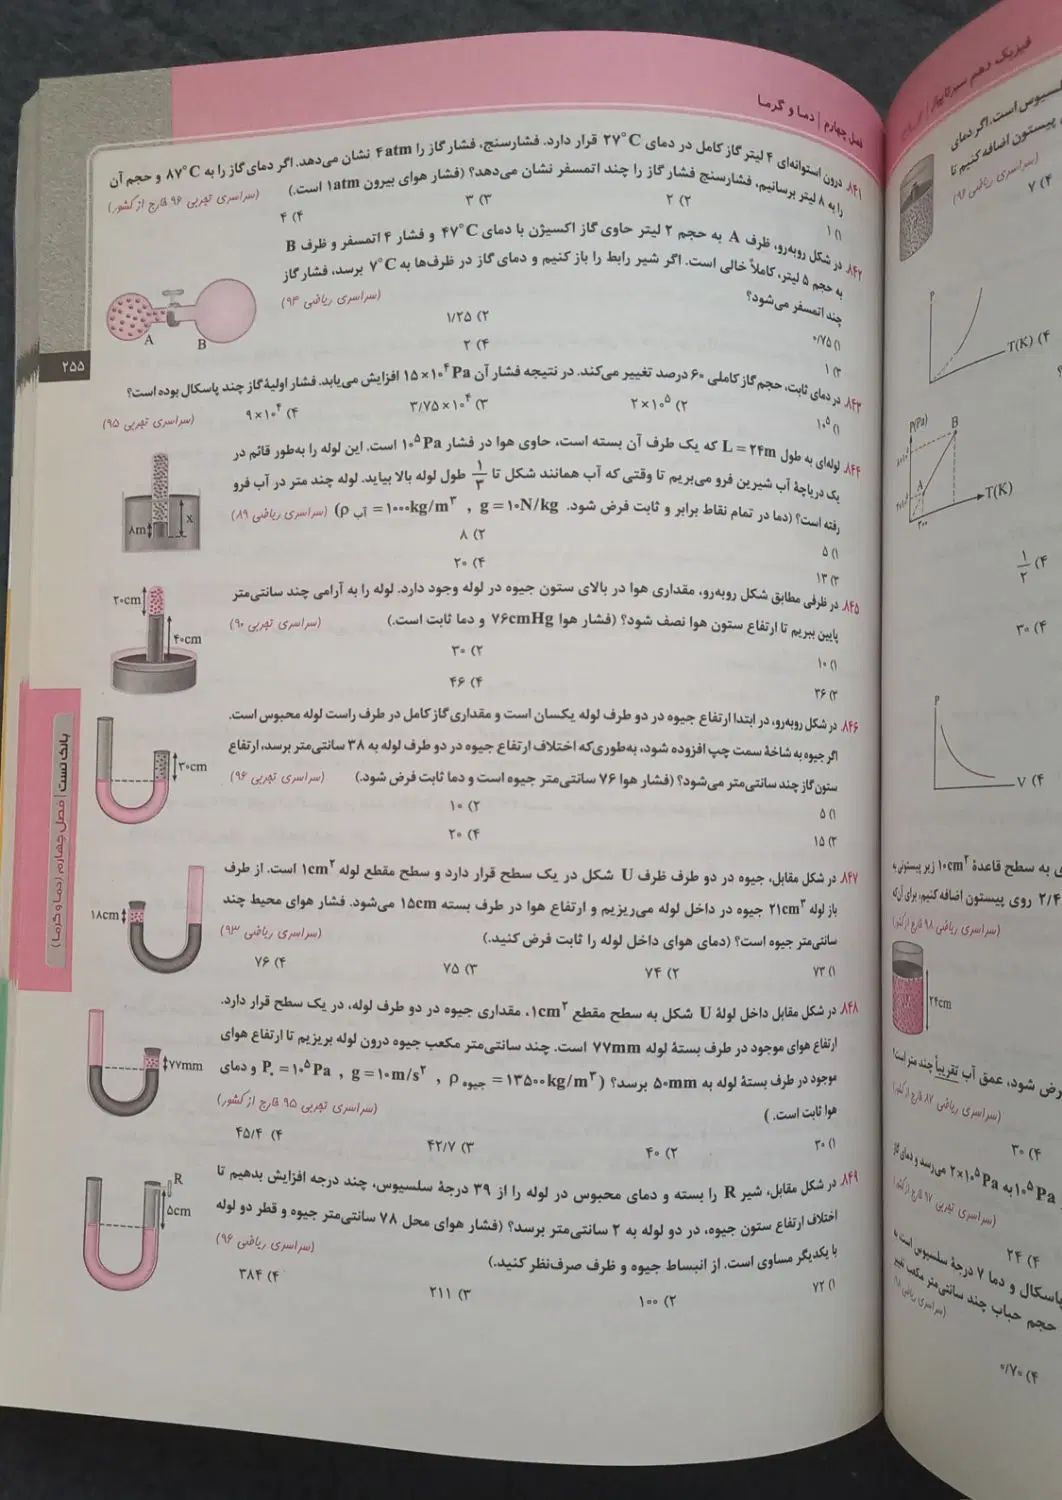 فصل چهارم | دما و گرما
۸۴۱. درون استوانه‌ای ۴ لیتر گاز کامل در دمای ۲۷°C قرار دارد. فشارسنج، فشار گاز را ۴atm نشان می‌دهد. اگر دمای گاز را به ۸۷°C و حجم آن
را به ۸ لیتر برسانیم، فشارسنج فشار گاز را چند اتمسفر نشان می‌دهد؟ (فشار هوای بیرون ۱atm است.) (سراسری تجربی ۹۶ خارج از کشور)
۱) ۱ ۲) ۲ ۳) ۳ ۴) ۴
۸۴۲. در شکل روبه‌رو، ظرف A به حجم ۲ لیتر حاوی گاز اکسیژن با دمای ۴۷°C و فشار ۴ اتمسفر و ظرف B
به حجم ۵ لیتر، کاملاً خالی است. اگر شیر رابط را باز کنیم و دمای گاز در ظرف‌ها به ۷°C برسد، فشار گاز
چند اتمسفر می‌شود؟ (سراسری ریاضی ۹۴)
۱) ۰/۷۵ ۲) ۱/۲۵
۳) ۱ ۴) ۲
A B
۸۴۳. در دمای ثابت، حجم گاز کاملی ۶۰ درصد تغییر می‌کند. در نتیجه فشار آن ۱۵×۱۰⁴ Pa افزایش می‌یابد. فشار اولیهٔ گاز چند پاسکال بوده است؟
۱) ۱۰⁵ ۲) ۲×۱۰⁵ ۳) ۳/۷۵×۱۰⁴ ۴) ۹×۱۰⁴ (سراسری تجربی ۹۵)
۸۴۴. لوله‌ای به طول L = ۲۴m که یک طرف آن بسته است، حاوی هوا در فشار ۱۰⁵ Pa است. این لوله را به‌طور قائم در
یک دریاچهٔ آب شیرین فرو می‌بریم تا وقتی که آب همانند شکل تا ۱/۳ طول لوله بالا بیاید. لوله چند متر در آب فرو
رفته است؟ (دما در تمام نقاط برابر و ثابت فرض شود. g = ۱۰N/kg , ρ آب = ۱۰۰۰kg/m³) (سراسری ریاضی ۸۹)
۱) ۵ ۲) ۸
۳) ۱۳ ۴) ۲۰
۸m x
۸۴۵. در ظرفی مطابق شکل روبه‌رو، مقداری هوا در بالای ستون جیوه در لوله وجود دارد. لوله را به آرامی چند سانتی‌متر
پایین ببریم تا ارتفاع ستون هوا نصف شود؟ (فشار هوا ۷۶cmHg و دما ثابت است.) (سراسری تجربی ۹۰)
۱) ۱۰ ۲) ۳۰
۳) ۳۶ ۴) ۴۶
۲۰cm
۴۰cm
۸۴۶. در شکل روبه‌رو، در ابتدا ارتفاع جیوه در دو طرف لوله یکسان است و مقداری گاز کامل در طرف راست لوله محبوس است.
اگر جیوه به شاخهٔ سمت چپ افزوده شود، به‌طوری‌که اختلاف ارتفاع جیوه در دو طرف لوله به ۳۸ سانتی‌متر برسد، ارتفاع
ستون گاز چند سانتی‌متر می‌شود؟ (فشار هوا ۷۶ سانتی‌متر جیوه است و دما ثابت فرض شود.) (سراسری تجربی ۹۶)
۱) ۵ ۲) ۱۰
۳) ۱۵ ۴) ۲۰
۳۰cm
۸۴۷. در شکل مقابل، جیوه در دو طرف ظرف U شکل در یک سطح قرار دارد و سطح مقطع لوله ۱cm² است. از طرف
باز لوله ۲۱cm³ جیوه در داخل لوله می‌ریزیم و ارتفاع هوا در طرف بسته ۱۵cm می‌شود. فشار هوای محیط چند
سانتی‌متر جیوه است؟ (دمای هوای داخل لوله را ثابت فرض کنید.) (سراسری ریاضی ۹۳)
۱) ۷۳ ۲) ۷۴ ۳) ۷۵ ۴) ۷۶
۱۸cm
۸۴۸. در شکل مقابل داخل لولهٔ U شکل به سطح مقطع ۱cm²، مقداری جیوه در دو طرف لوله، در یک سطح قرار دارد.
ارتفاع هوای موجود در طرف بستهٔ لوله ۷۷mm است. چند سانتی‌متر مکعب جیوه درون لوله بریزیم تا ارتفاع هوای
موجود در طرف بستهٔ لوله به ۵۰mm برسد؟ (P₀ = ۱۰⁵Pa , g = ۱۰m/s² , ρ جیوه = ۱۳۵۰۰kg/m³ و دمای
هوا ثابت است.) (سراسری تجربی ۹۵ خارج از کشور)
۱) ۳۰ ۲) ۴۰ ۳) ۴۲/۷ ۴) ۴۵/۴
۷۷mm
۸۴۹. در شکل مقابل، شیر R را بسته و دمای محبوس در لوله را از ۳۹ درجهٔ سلسیوس، چند درجه افزایش بدهیم تا
اختلاف ارتفاع ستون جیوه، در دو لوله به ۲ سانتی‌متر برسد؟ (فشار هوای محل ۷۸ سانتی‌متر جیوه و قطر دو لوله
با یکدیگر مساوی است. از انبساط جیوه و ظرف صرف‌نظر کنید.) (سراسری ریاضی ۹۶)
۱) ۷۲ ۲) ۱۰۰ ۳) ۲۱۱ ۴) ۳۸۴
R
۵cm
۲۵۵
بانک تست | فصل چهارم (دما و گرما)
فیزیک دهم
سلسیوس است. اگر دمای
پیستون اضافه کنیم تا
(سراسری ریاضی ۹۶)
۴) ۷
P
T(K) (۴
P(Pa)
B
A
T(K)
۲۰۰
۴) ۱/۲
۴) ۳۰
P
V (۴
ی به سطح قاعدهٔ ۱۰cm² زیر پیستونی به
۲/۴ روی پیستون اضافه کنیم، برای آن‌که
(سراسری ریاضی ۹۸ خارج از کشور)
۲۴cm
رض شود، عمق آب تقریباً چند متر است؟
(سراسری ریاضی ۸۷ خارج از کشور)
۴) ۳۰
۱۰⁵ Pa به ۲×۱۰⁵ Pa می‌رسد و دمای گاز
(سراسری تجربی ۹۷ خارج از کشور)
۴) ۲۴
پاسکال و دما ۷ درجهٔ سلسیوس است به
حجم حباب چند سانتی‌متر مکعب تغییر
(سراسری ریاضی ۹۸)
۴) ۰/۷۰